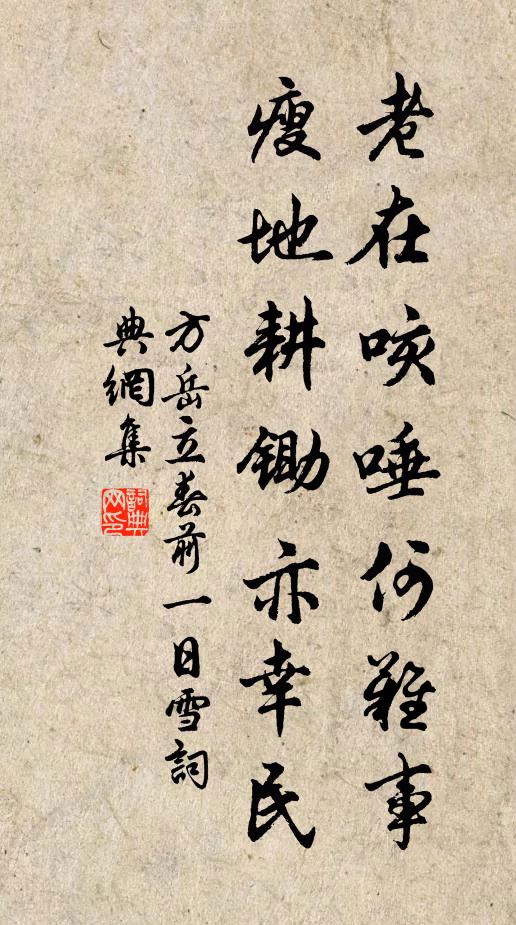 老在咳唾何難事
瘦地耕鋤亦幸民
方岳立春前一日雪詞
典網集
詞典网印